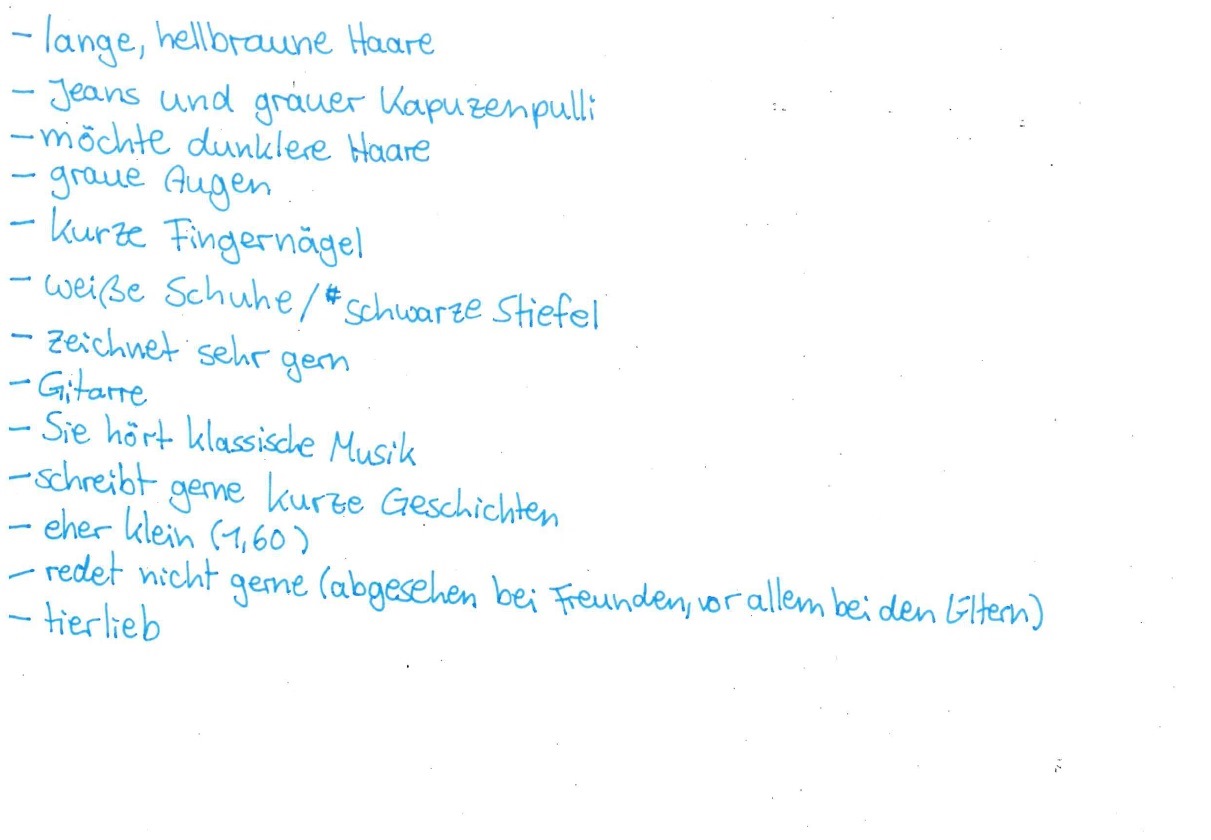 - lange, hellbraune Haare
- Jeans und grauer Kapuzenpulli
- möchte dunklere Haare
- graue Augen
- kurze Fingernägel
- weiße Schuhe / schwarze Stiefel
- zeichnet sehr gern
- Gitarre
- Sie hört klassische Musik
- schreibt gerne kurze Geschichten
- eher klein (1,60)
- redet nicht gerne (abgesehen bei Freunden, vor allem bei den Eltern)
- tierlieb